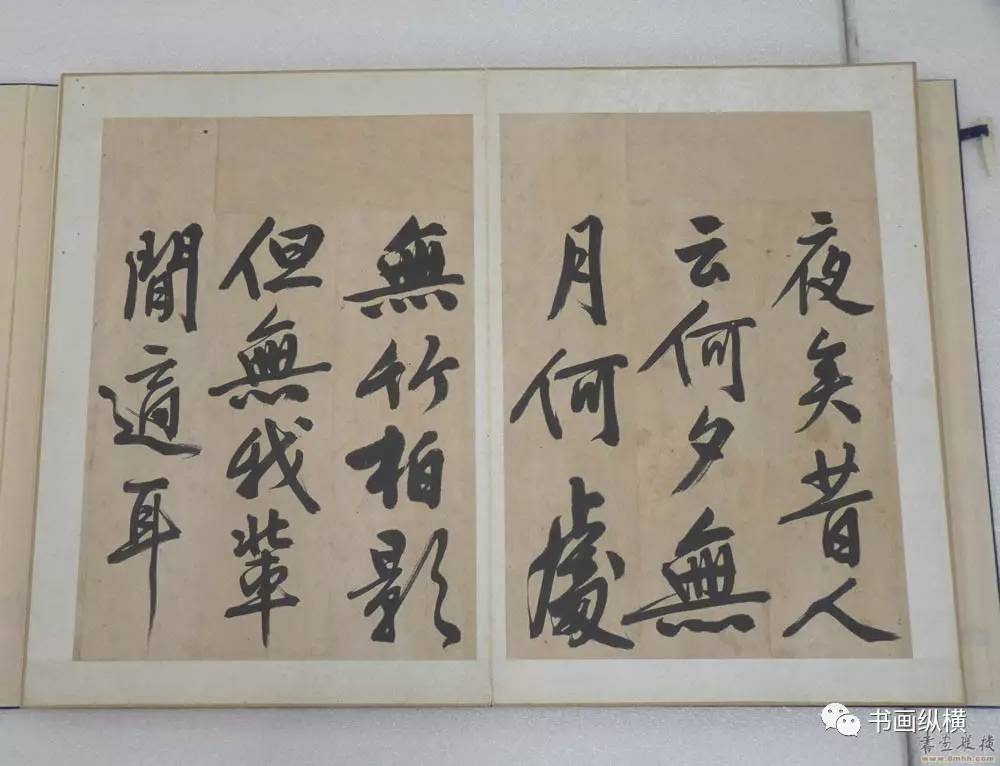 夜矣昔人
云何夕無
月何處
無竹柏影
但無我輩
閒適耳
书画纵横
書画纵横
www.8mhh.com